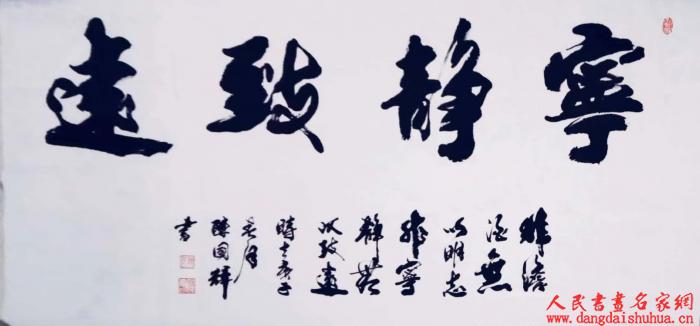 寧靜致遠
非澹
泊無
以明志
非寧
靜無
以致遠
時在庚子
月
陳國輝
書
人民書畫名家網
www.dangdaishuhua.cn